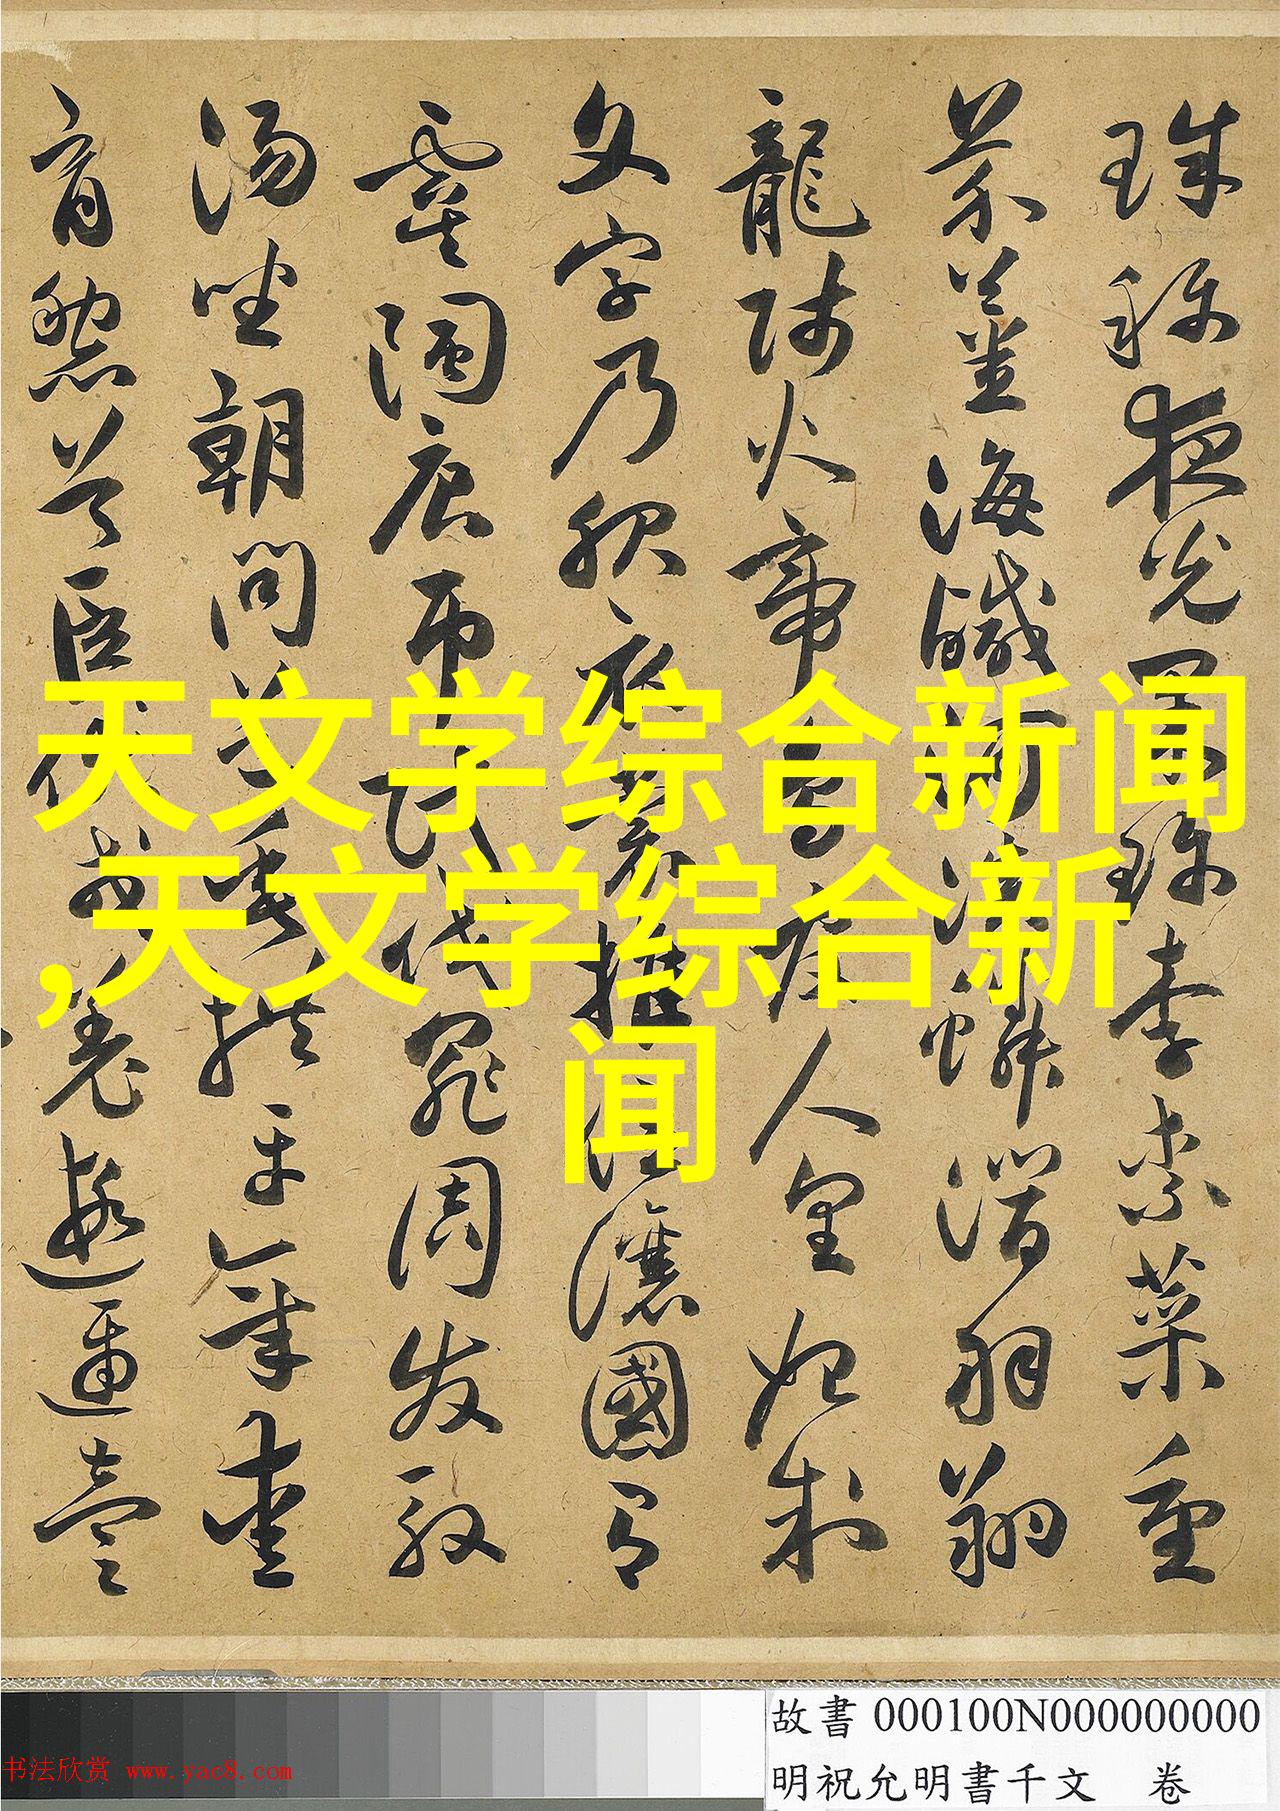 珠稱夜光果珍李柰菜重
芥薑海鹹河淡鱗潛羽翔
龍師火帝鳥官人皇始制
文字乃服衣裳推位讓國有
虞陶唐弔民伐罪周發殷
湯坐朝問道垂拱平章愛
育黎首臣伏戎羌遐邇壹
天文学综合新闻
,天文学综合新
闻
故書 000100N000000000
明祝允明書千文 卷
书法欣赏 www.yac8.com